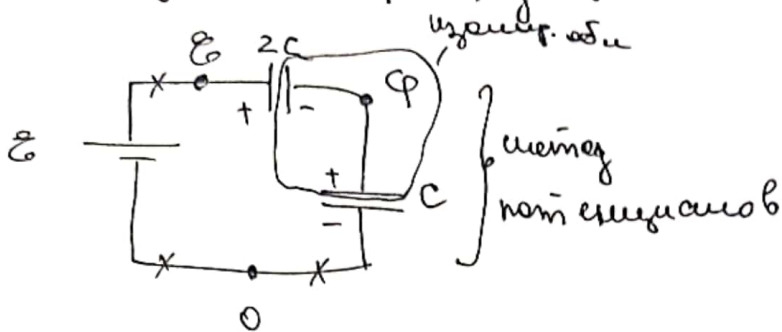 изолир. обл
ℰ 2C
+ - φ
ℰ
+ C
-
метод
потенциалов
0